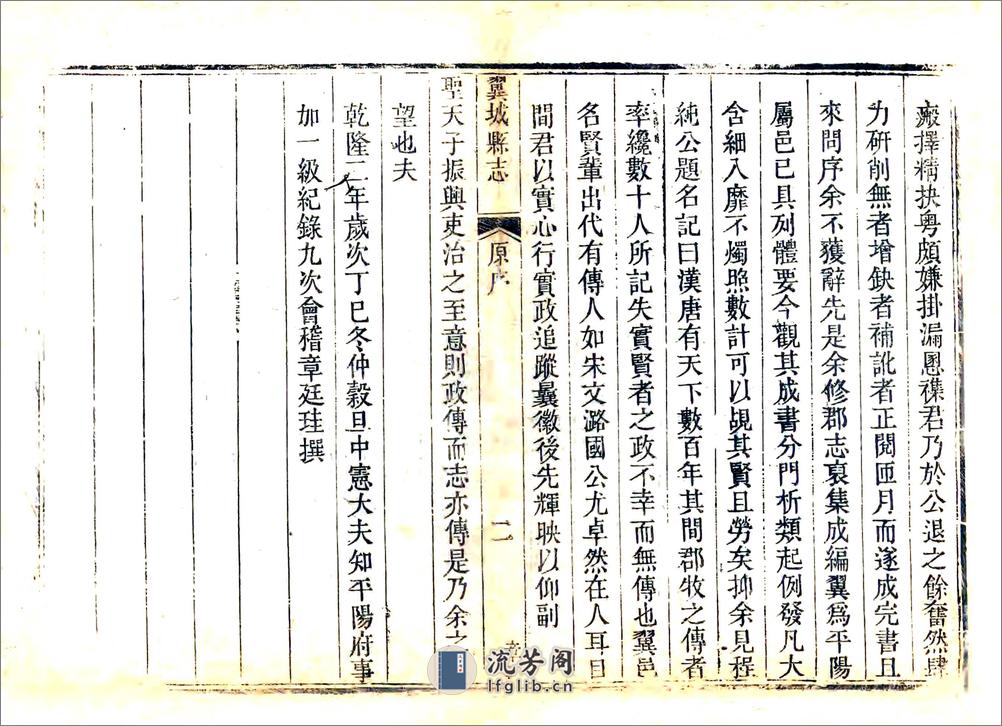 瘢擇精抉粤頗嫌掛漏愳襍君乃於公退之餘奮然肆
力研削無者增缺者補訛者正閱匝月而遂成完書且
來問序余不獲辭先是余修郡志裒集成編翼爲平陽
屬邑已具列體要今觀其成書分門析類起例發凡大
含細入靡不燭照數計可以覘其賢且勞矣抑余見程
純公題名記曰漢唐有天下數百年其間郡牧之傳者
率纔數十人所記失實賢者之政不幸而無傳也翼邑
名賢輩出代有傳人如宋文潞國公尤卓然在人耳目
間君以實心行實政追蹤曩徽後先輝映以仰副
翼城縣志 原序 二
聖天子振興吏治之至意則政傳而志亦傳是乃余之
望也夫
乾隆二年歲次丁巳冬仲穀旦中憲大夫知平陽府事
加一級紀錄九次會稽章廷珪撰
流芳閣
lfglib.cn